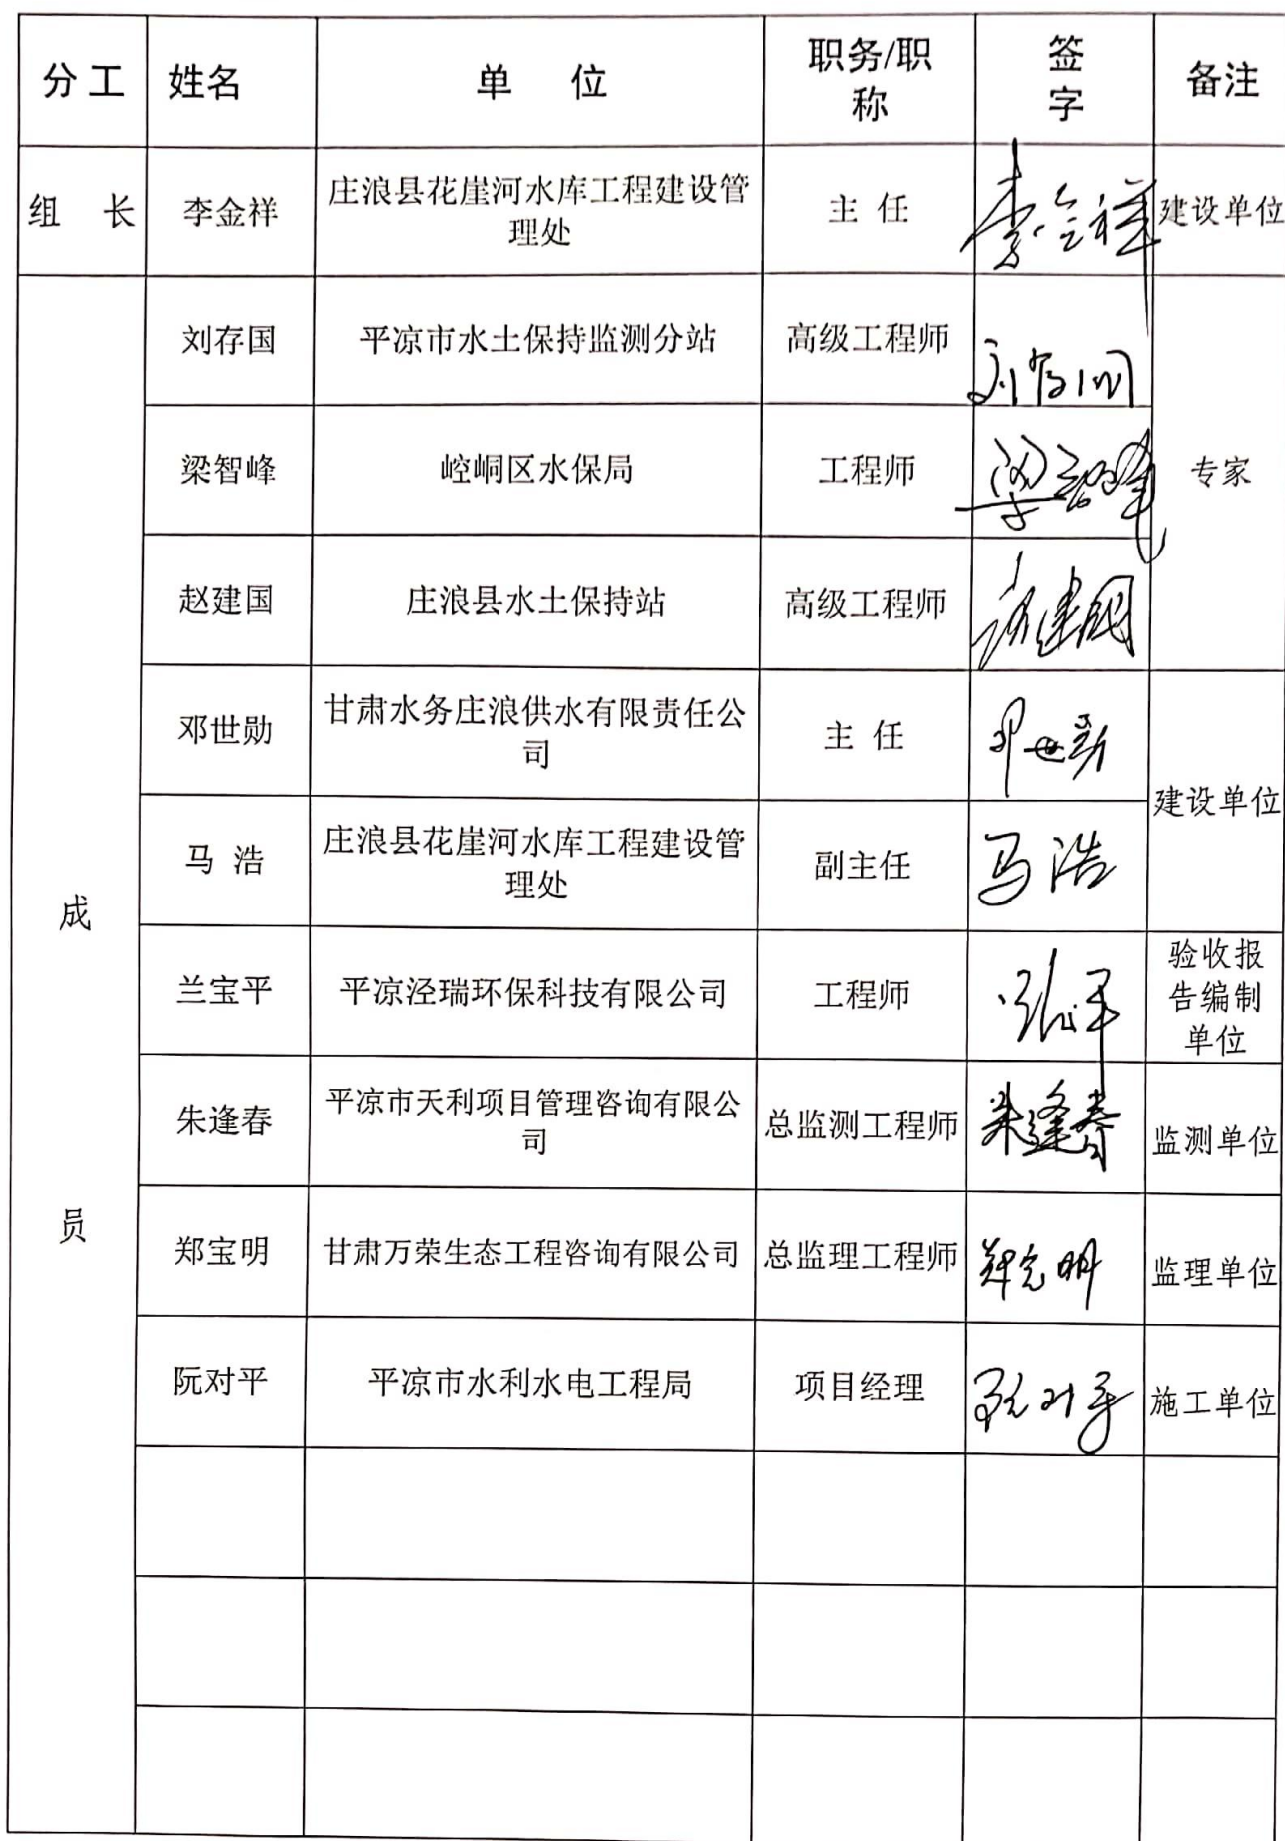 分工 姓名 单 位 职务/职称 签字 备注
组 长 李金祥 庄浪县花崖河水库工程建设管理处 主 任 李金祥 建设单位
成员
刘存国 平凉市水土保持监测分站 高级工程师 刘存国 专家
梁智峰 崆峒区水保局 工程师 梁智峰
赵建国 庄浪县水土保持站 高级工程师 赵建国
邓世勋 甘肃水务庄浪供水有限责任公司 主 任 邓世勋 建设单位
马 浩 庄浪县花崖河水库工程建设管理处 副主任 马浩
兰宝平 平凉泾瑞环保科技有限公司 工程师 验收报告编制单位
朱逢春 平凉市天利项目管理咨询有限公司 总监测工程师 朱逢春 监测单位
郑宝明 甘肃万荣生态工程咨询有限公司 总监理工程师 郑宝明 监理单位
阮对平 平凉市水利水电工程局 项目经理 阮对平 施工单位